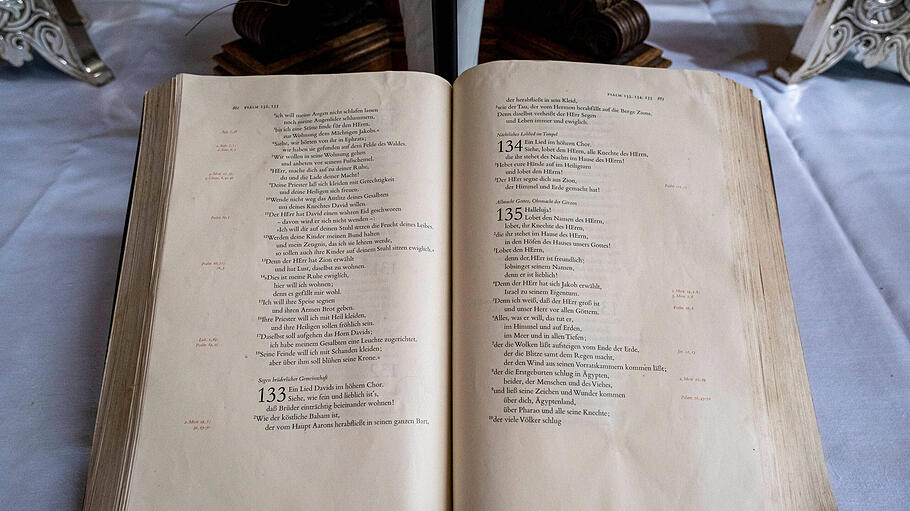 PSALM 132, 133
⁴ich will meine Augen nicht schlafen lassen
noch meine Augenlider schlummern,
⁵bis ich eine Stätte finde für den HErrn,
zur Wohnung dem Mächtigen Jakobs.«
⁶Siehe, wir hörten von ihr in Ephrata;
wir haben sie gefunden auf dem Felde des Waldes.
⁷Wir wollen in seine Wohnung gehen
und anbeten vor seinem Fußschemel.
⁸HErr, mache dich auf zu deiner Ruhe,
du und die Lade deiner Macht!
⁹Deine Priester laß sich kleiden mit Gerechtigkeit
und deine Heiligen sich freuen.
¹⁰Wende nicht weg das Antlitz deines Gesalbten
um deines Knechtes David willen.
¹¹Der HErr hat David einen wahren Eid geschworen
– davon wird er sich nicht wenden –:
»Ich will dir auf deinen Stuhl setzen die Frucht deines Leibes.
¹²Werden deine Kinder meinen Bund halten
und mein Zeugnis, das ich sie lehren werde,
so sollen auch ihre Kinder auf deinem Stuhl sitzen ewiglich.«
¹³Denn der HErr hat Zion erwählt
und hat Lust, daselbst zu wohnen.
¹⁴»Dies ist meine Ruhe ewiglich,
hier will ich wohnen;
denn es gefällt mir wohl.
¹⁵Ich will ihre Speise segnen
und ihren Armen Brot geben.
¹⁶Ihre Priester will ich mit Heil kleiden,
und ihre Heiligen sollen fröhlich sein.
¹⁷Daselbst soll aufgehen das Horn Davids;
ich habe meinem Gesalbten eine Leuchte zugerichtet.
¹⁸Seine Feinde will ich mit Schanden kleiden;
aber über ihm soll blühen seine Krone.«
Segen brüderlicher Gemeinschaft
133 Ein Lied Davids im höhern Chor.
Siehe, wie fein und lieblich ist's,
daß Brüder einträchtig beieinander wohnen!
²Wie der köstliche Balsam ist,
der vom Haupt Aarons herabfließt in seinen ganzen Bart,
PSALM 133, 134, 135
der herabfließt in sein Kleid,
³wie der Tau, der vom Hermon herabfällt auf die Berge Zions.
Denn daselbst verheißt der HErr Segen
und Leben immer und ewiglich.
Nächtliches Loblied im Tempel
134 Ein Lied im höhern Chor.
Siehe, lobet den HErrn, alle Knechte des HErrn,
die ihr stehet des Nachts im Hause des HErrn!
²Hebet eure Hände auf im Heiligtum
und lobet den HErrn!
³Der HErr segne dich aus Zion,
der Himmel und Erde gemacht hat!
Allmacht Gottes, Ohnmacht der Götzen
135 Halleluja!
Lobet den Namen des HErrn,
lobet, ihr Knechte des HErrn,
²die ihr stehet im Hause des HErrn,
in den Höfen des Hauses unsers Gottes!
³Lobet den HErrn,
denn der HErr ist freundlich;
lobsinget seinem Namen,
denn er ist lieblich!
⁴Denn der HErr hat sich Jakob erwählt,
Israel zu seinem Eigentum.
⁵Denn ich weiß, daß der HErr groß ist
und unser Herr vor allen Göttern.
⁶Alles, was er will, das tut er,
im Himmel und auf Erden,
im Meer und in allen Tiefen;
⁷der die Wolken läßt aufsteigen vom Ende der Erde,
der die Blitze samt dem Regen macht,
der den Wind aus seinen Vorratskammern kommen läßt;
⁸der die Erstgeburten schlug in Ägypten,
beider, der Menschen und des Viehes,
⁹und ließ seine Zeichen und Wunder kommen
über dich, Ägyptenland,
über Pharao und alle seine Knechte;
¹⁰der viele Völker schlug